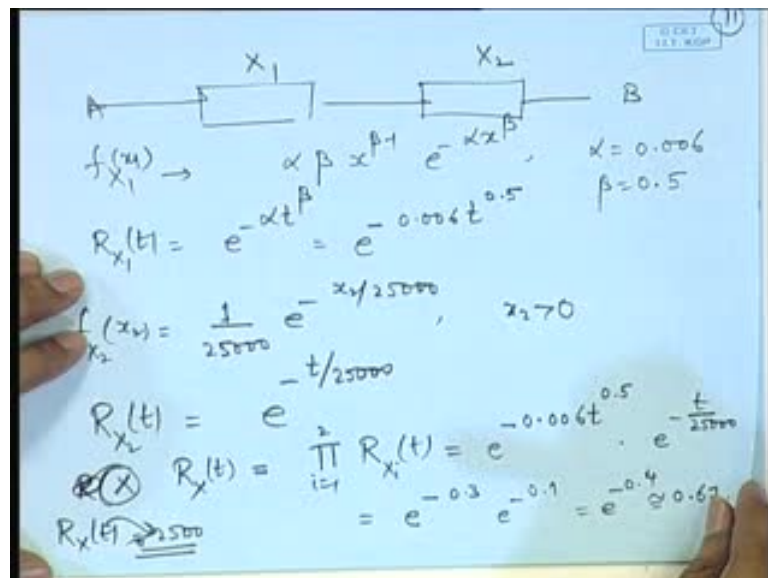 11
X₁ X₂
A B
f_X₁(x₁) → αβ x^{β-1} e^{-αx^β}, α = 0.006
β = 0.5
R_X₁(t) = e^{-αt^β} = e^{-0.006t^{0.5}}
f_X₂(x₂) = 1/25000 e^{-x₂/25000}, x₂ > 0
R_X₂(t) = e^{-t/25000}
X R_X(t) = ∏_{i=1}^{2} R_{X_i}(t) = e^{-0.006t^{0.5}} · e^{-t/25000}
= e^{-0.3} e^{-0.1} = e^{-0.4} ≅ 0.67
R_X(t) 2500